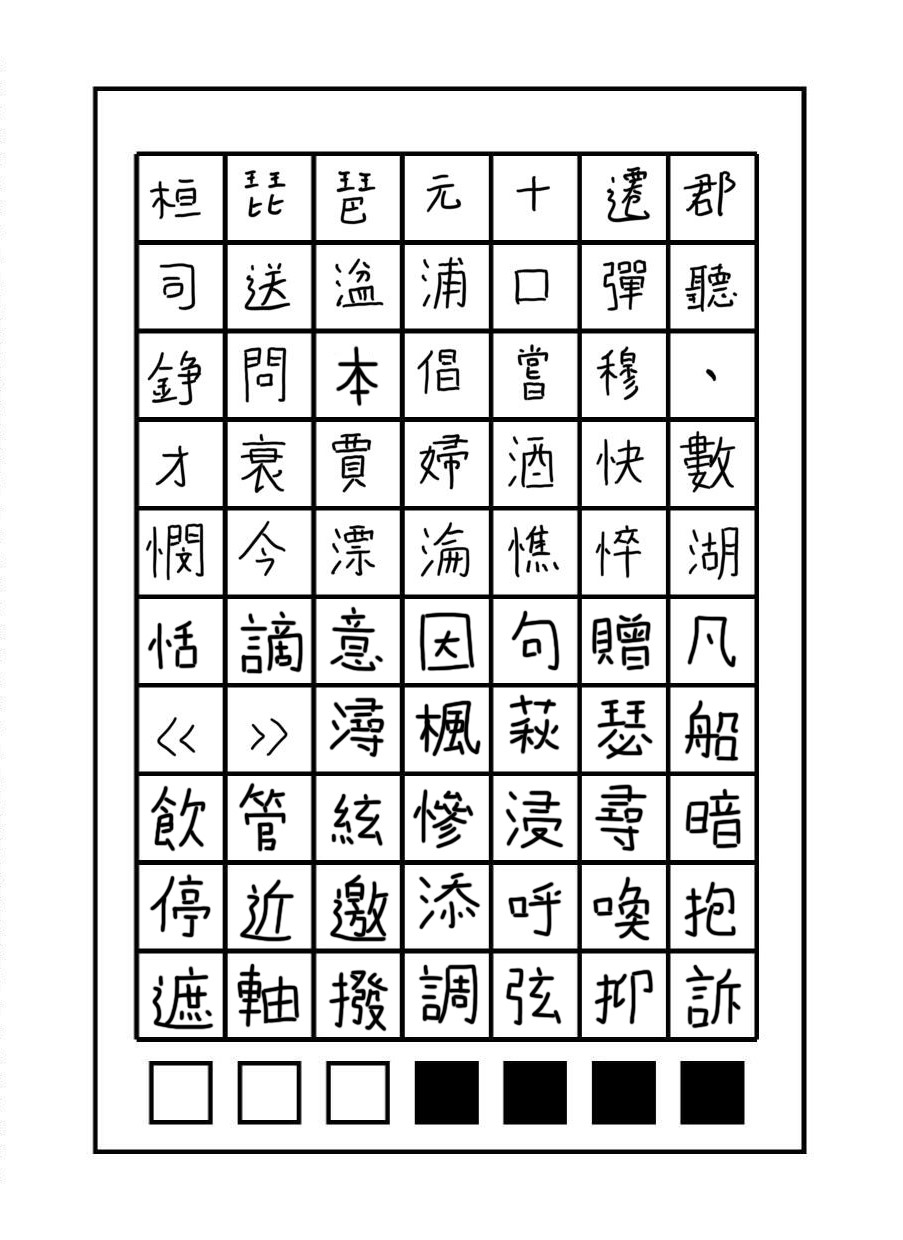 桓琵琶元十遷郡
司送湓浦口彈聽
錚問本倡嘗穆、
才衰賈婦酒快數
憫今漂淪憔悴湖
恬謫意因句贈凡
<<>>潯楓萩瑟船
飲管絃慘浸尋暗
停近邀添呼喚抱
遮軸撥調弦抑訴